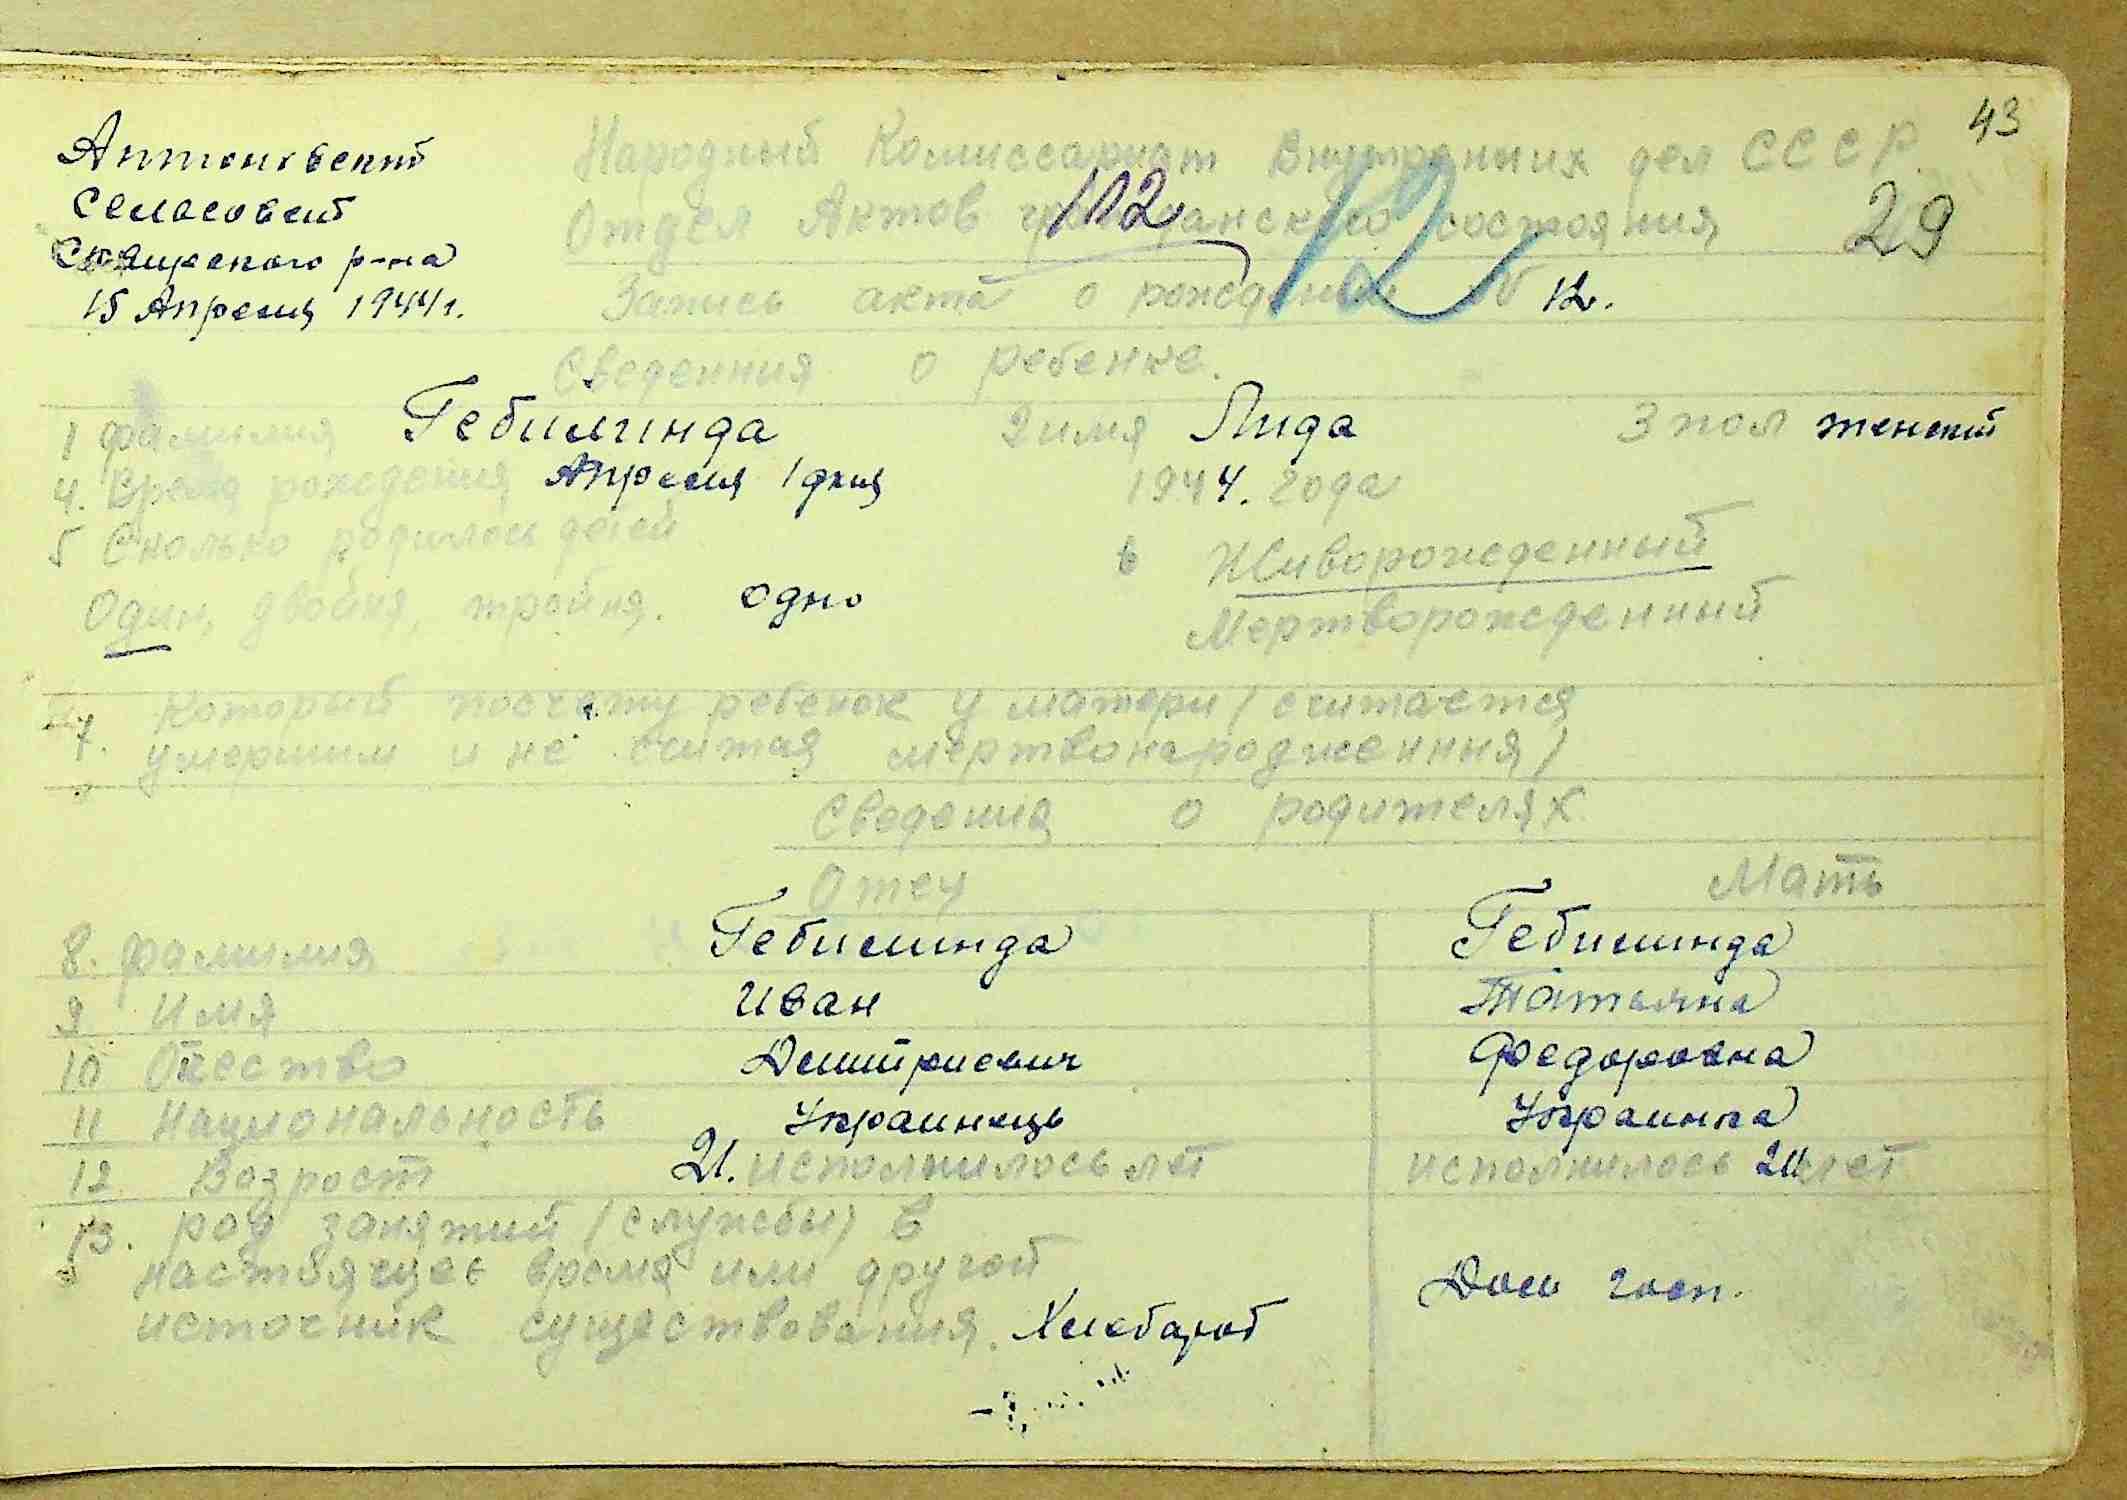 43
Антоновский
Сельсовет
Сквирского р-на
15 Апреля 1944 г.
Народный Комиссариат Внутренних дел СССР
Отдел Актов гражданского состояния
102
12
29
Запись акта о рождении № 12.
Сведенния о ребенке.
1 фамилия Гебилинда 2 имя Лида 3 пол женский
4. Время рождения Апреля 1 дня 1944. года
5 Сколько родилось детей
Один, двойня, тройня. Одно
6 Живорожденный
Мертворожденный
7. Который посчету ребенок у матери / считается
умершим и не считая мертвонародженния /
Сведения о родителях
Отец Мать
8. фамилия Гебилинда Гебилинда
9 Имя Иван Татьяна
10 Отчество Дмитриевич Федоровна
11 Национальность Украинець Украинка
12 Возрост 21. исполнилось лет исполнилось лет
13. род занятий / службы / в
настоящее время или другой
источник существования. Хлебороб
Дом госп.